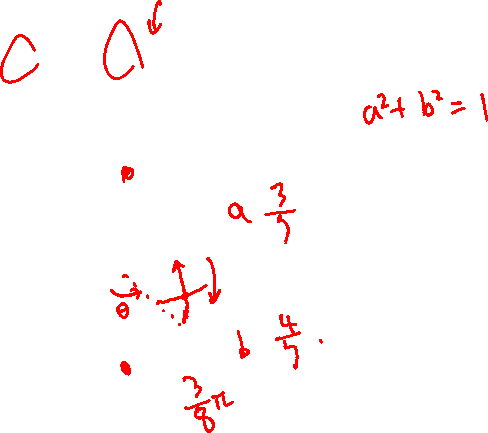 a² + b² = 1
a 3/5
θ
b 4/5 .
3/8 π